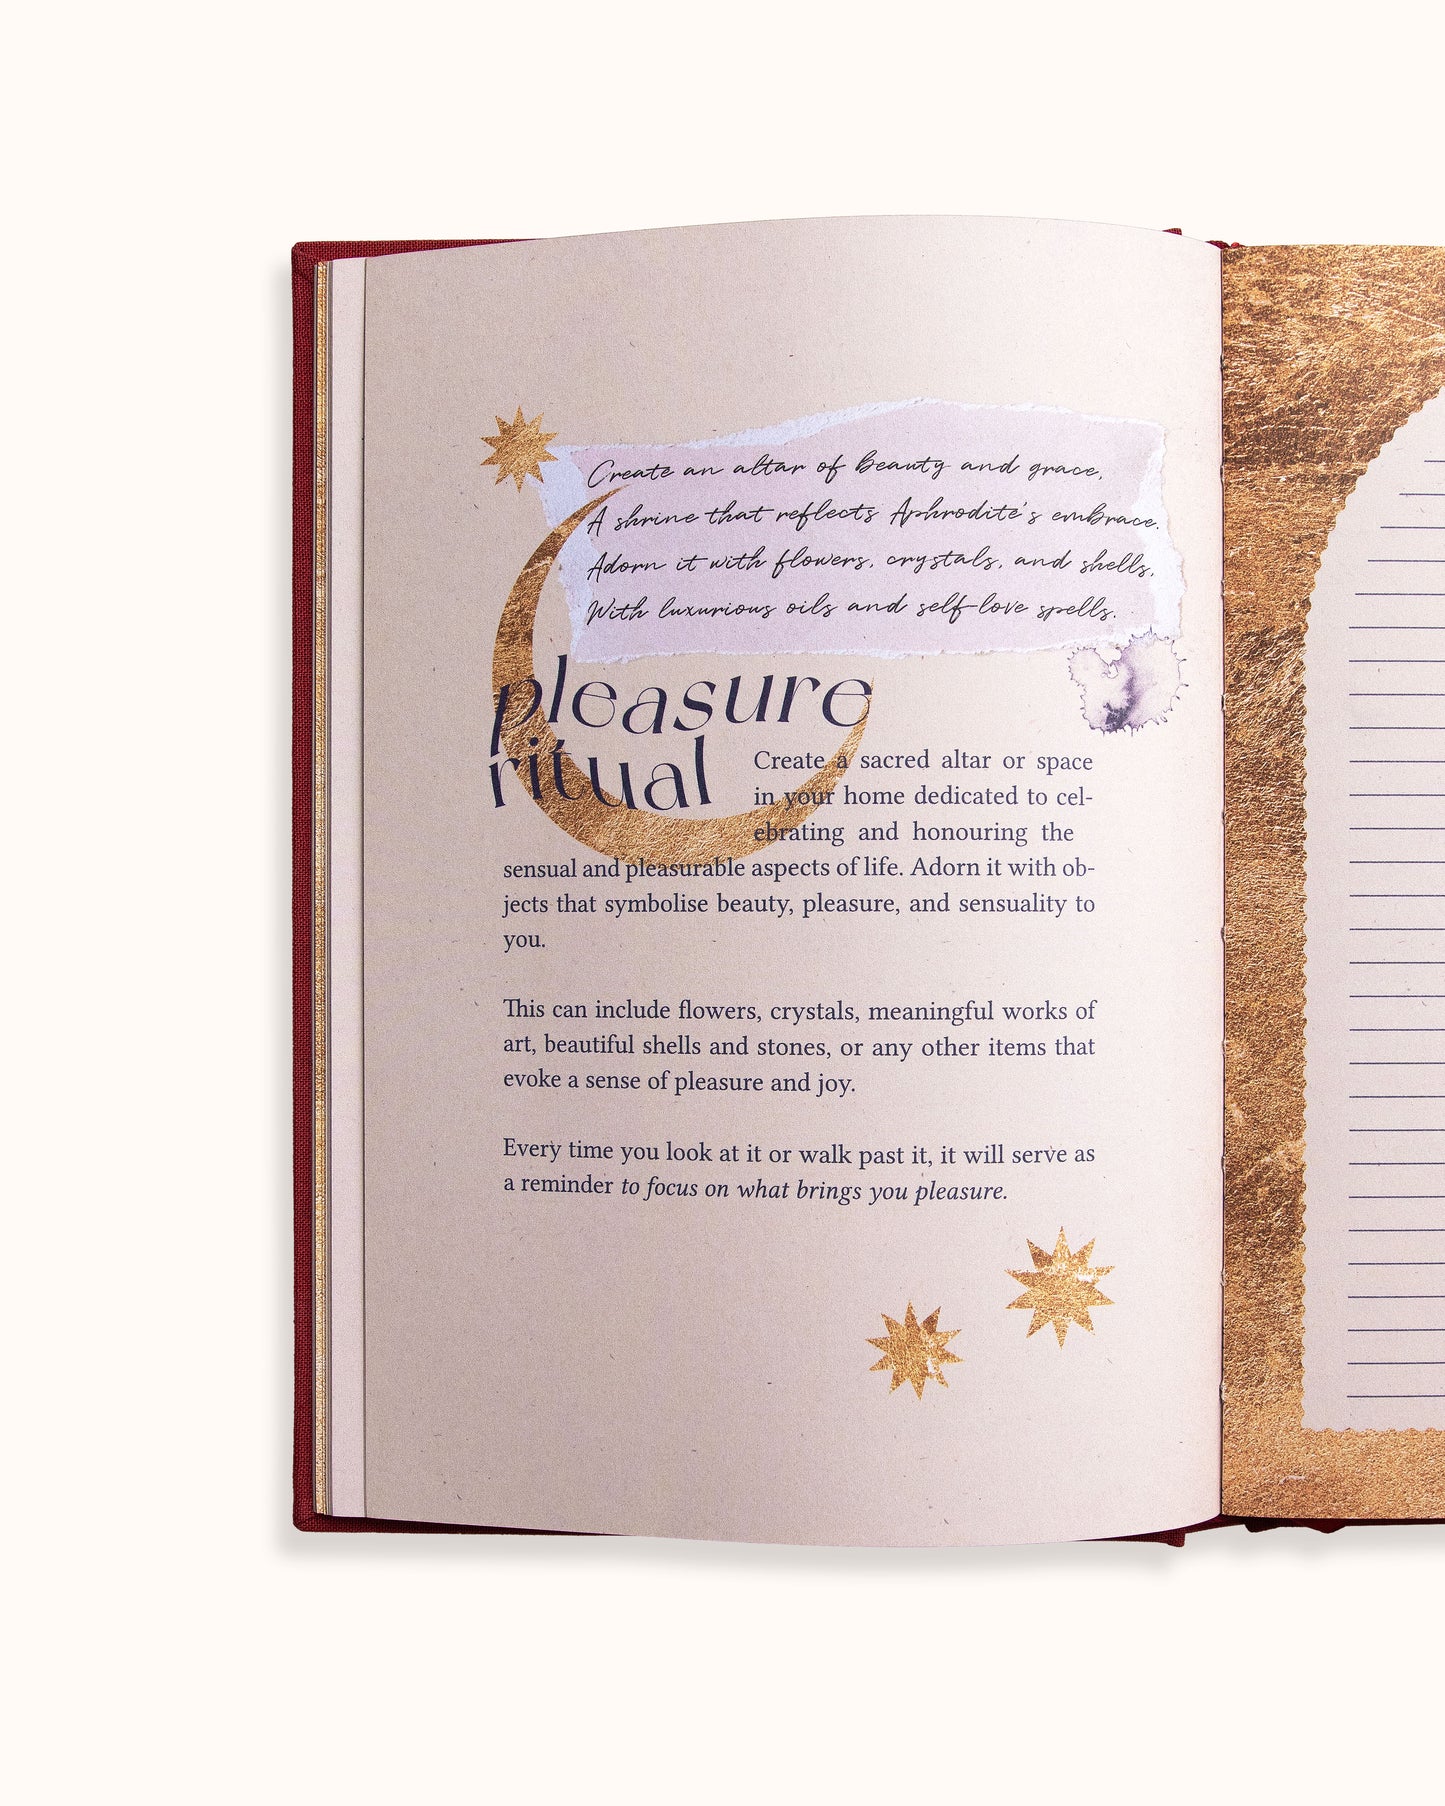 Create an altar of beauty and grace,
A shrine that reflects Aphrodite's embrace.
Adorn it with flowers, crystals, and shells,
With luxurious oils and self-love spells.
pleasure
ritual
Create a sacred altar or space
in your home dedicated to cel-
ebrating and honouring the
sensual and pleasurable aspects of life. Adorn it with ob-
jects that symbolise beauty, pleasure, and sensuality to
you.
This can include flowers, crystals, meaningful works of
art, beautiful shells and stones, or any other items that
evoke a sense of pleasure and joy.
Every time you look at it or walk past it, it will serve as
a reminder to focus on what brings you pleasure.